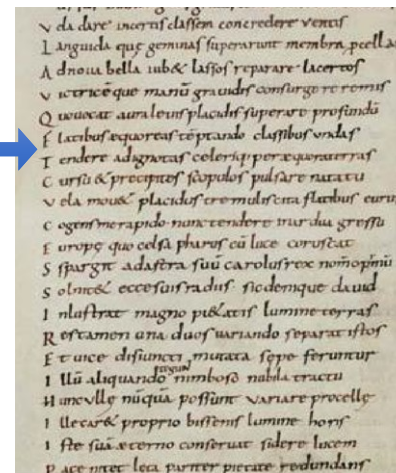 v da dare incertis classem concredere ventis
L anguida que geminas superarunt membra pcell
A dnoua bella iub& lassos reparare lacertos
v ictricẽque manũ grauidis consurgere remis
Q uouocat aura leuis placidis superare profundũ
F latibus æquoreas tẽptando classibus undas
T endere adignotas celeriq; per æquora terras
C ursu & precipites scopulos pulsare natatu
v ela mou& placidus tremulis cita flatibus euru
C ogens me rapido nunc tendere gressu
E uropę quo celsa pharus cũ luce coruscat
S spargit adastra suũ carolus rex nom̃ opimũ
S olnit& ecce suis radiis sic denique dauid
I nlustrat magno pi&atis lumine terras
R es tamen una duos uariando separat istos
E t uice disiuncti mutata sepe feruntur
I llũ aliquando tegunt nimboso nubila tractu
H unc ullę nũquã possunt variare procellę
I lle car& proprio bissenis lumine horis
I ste suã æterno conseruat sidere lucem
P ace nitet leta pariter pietate redundans